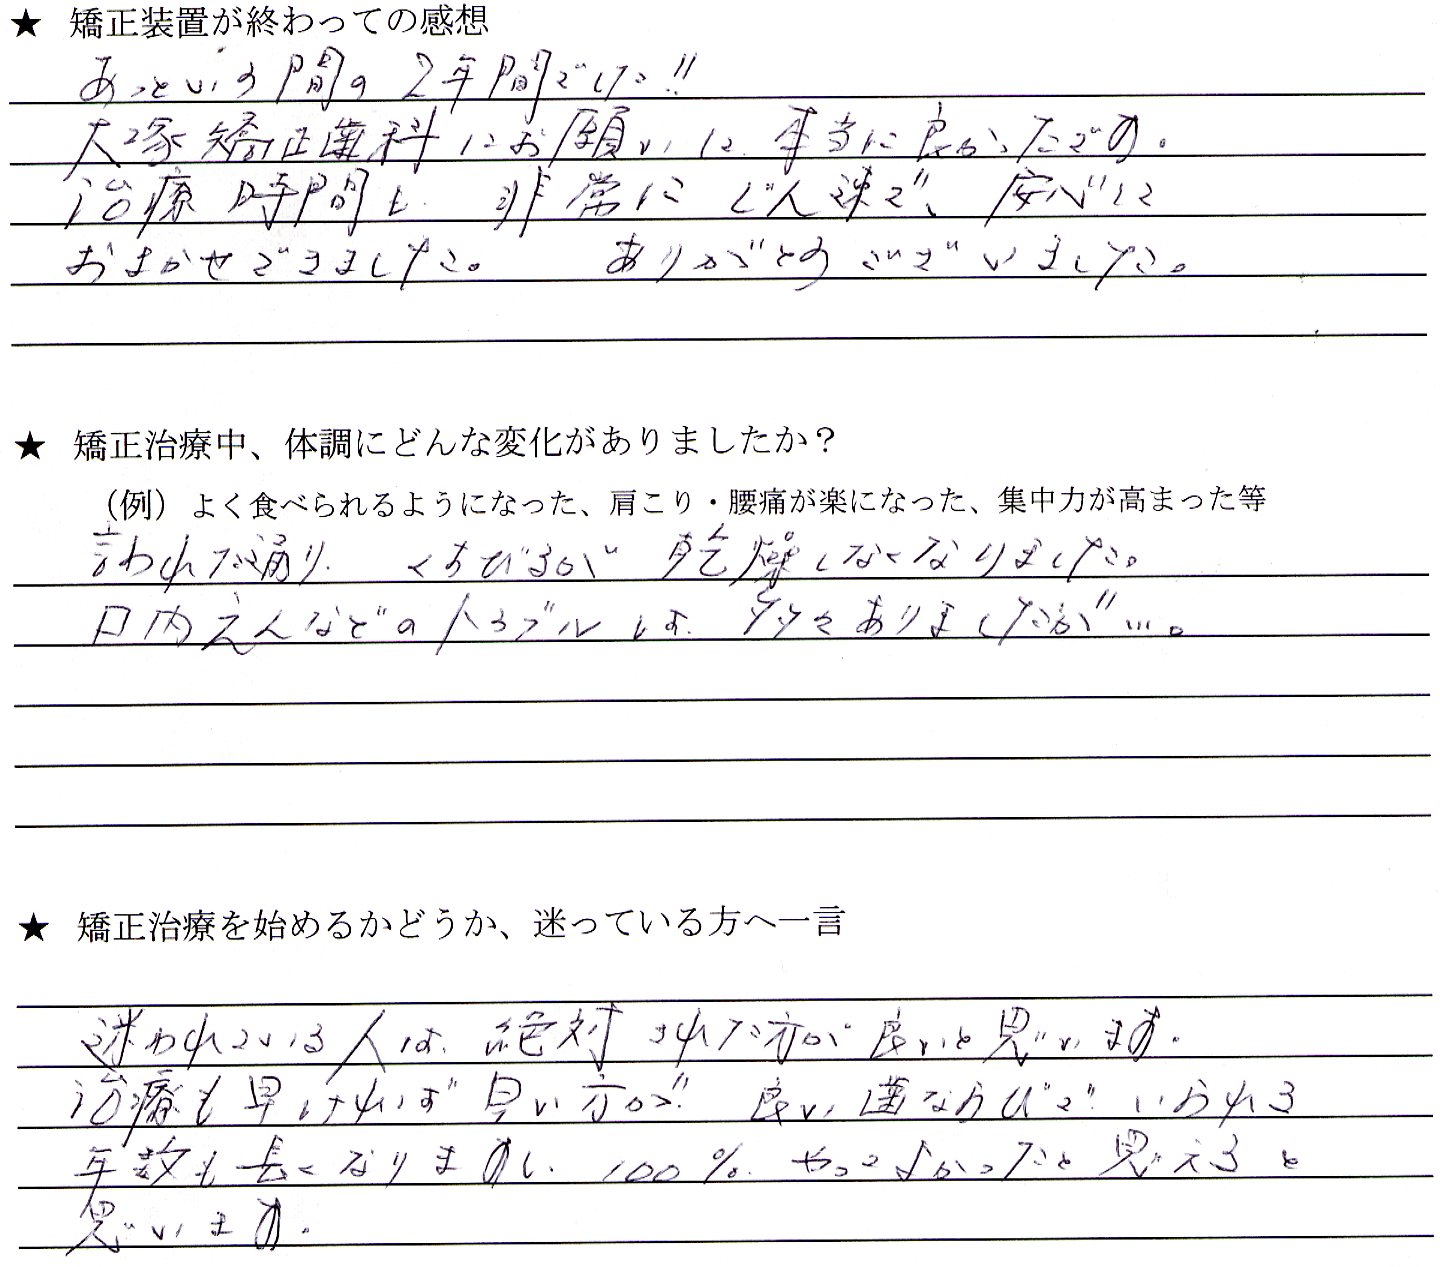 ★ 矯正装置が終わっての感想
あっという間の2年間でした!!
大塚矯正歯科にお願いして、本当に良かったです。
治療時間も、非常にじん速で、安心して
おまかせできました。 ありがとうございました。
★ 矯正治療中、体調にどんな変化がありましたか?
（例）よく食べられるようになった、肩こり・腰痛が楽になった、集中力が高まった等
言われた通り、くちびるが乾燥しなくなりました。
口内えんなどのトラブルは、多々ありましたが…。
★ 矯正治療を始めるかどうか、迷っている方へ一言
迷われている人は、絶対された方が良いと思います。
治療も早ければ早い方が、良い歯ならびで、いられる
年数も長くなりますし、100%、やってよかったと思えると
思います。